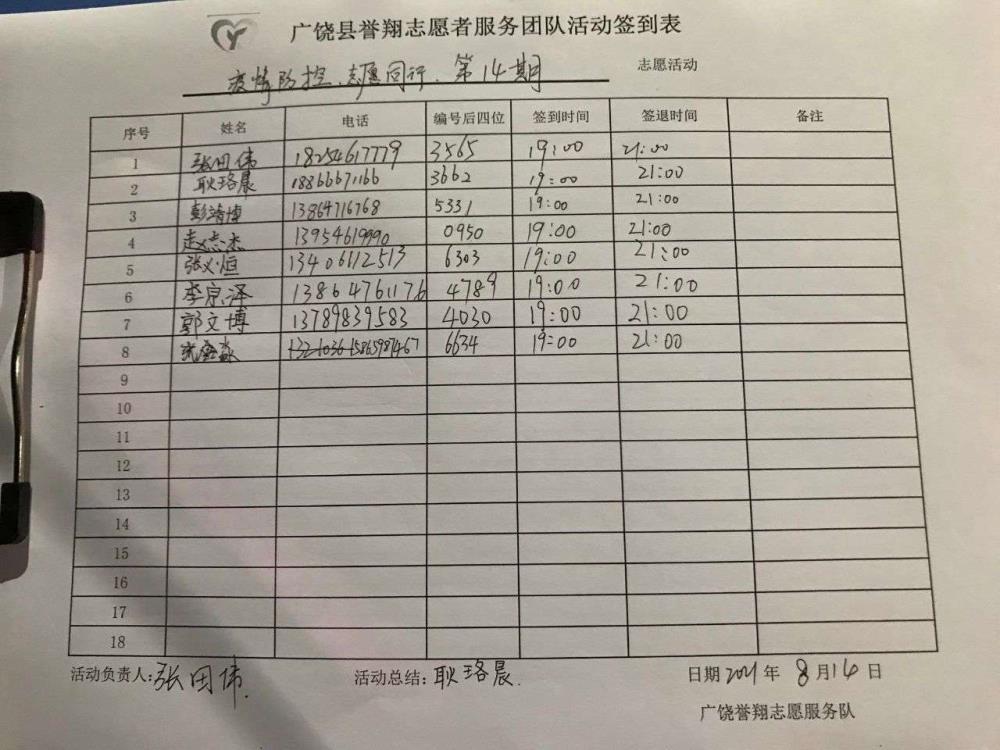 广饶县誉翔志愿者服务团队活动签到表
疫情防控、志愿同行、第14期 志愿活动
序号 姓名 电话 编号后四位 签到时间 签退时间 备注
1 张田伟 18254617779 3565 19:00 21:00
2 耿珞晨 18866671166 3662 19:00 21:00
3 彭靖博 13864716768 5331 19:00 21:00
4 赵志杰 13954619990 0950 19:00 21:00
5 张义恒 13406112513 6303 19:00 21:00
6 李京泽 13864761176 4789 19:00 21:00
7 郭文博 13789839583 4030 19:00 21:00
8 6634 19:00 21:00
9
10
11
12
13
14
15
16
17
18
活动负责人:张田伟. 活动总结:耿珞晨. 日期2021年 8月14日
广饶誉翔志愿服务队